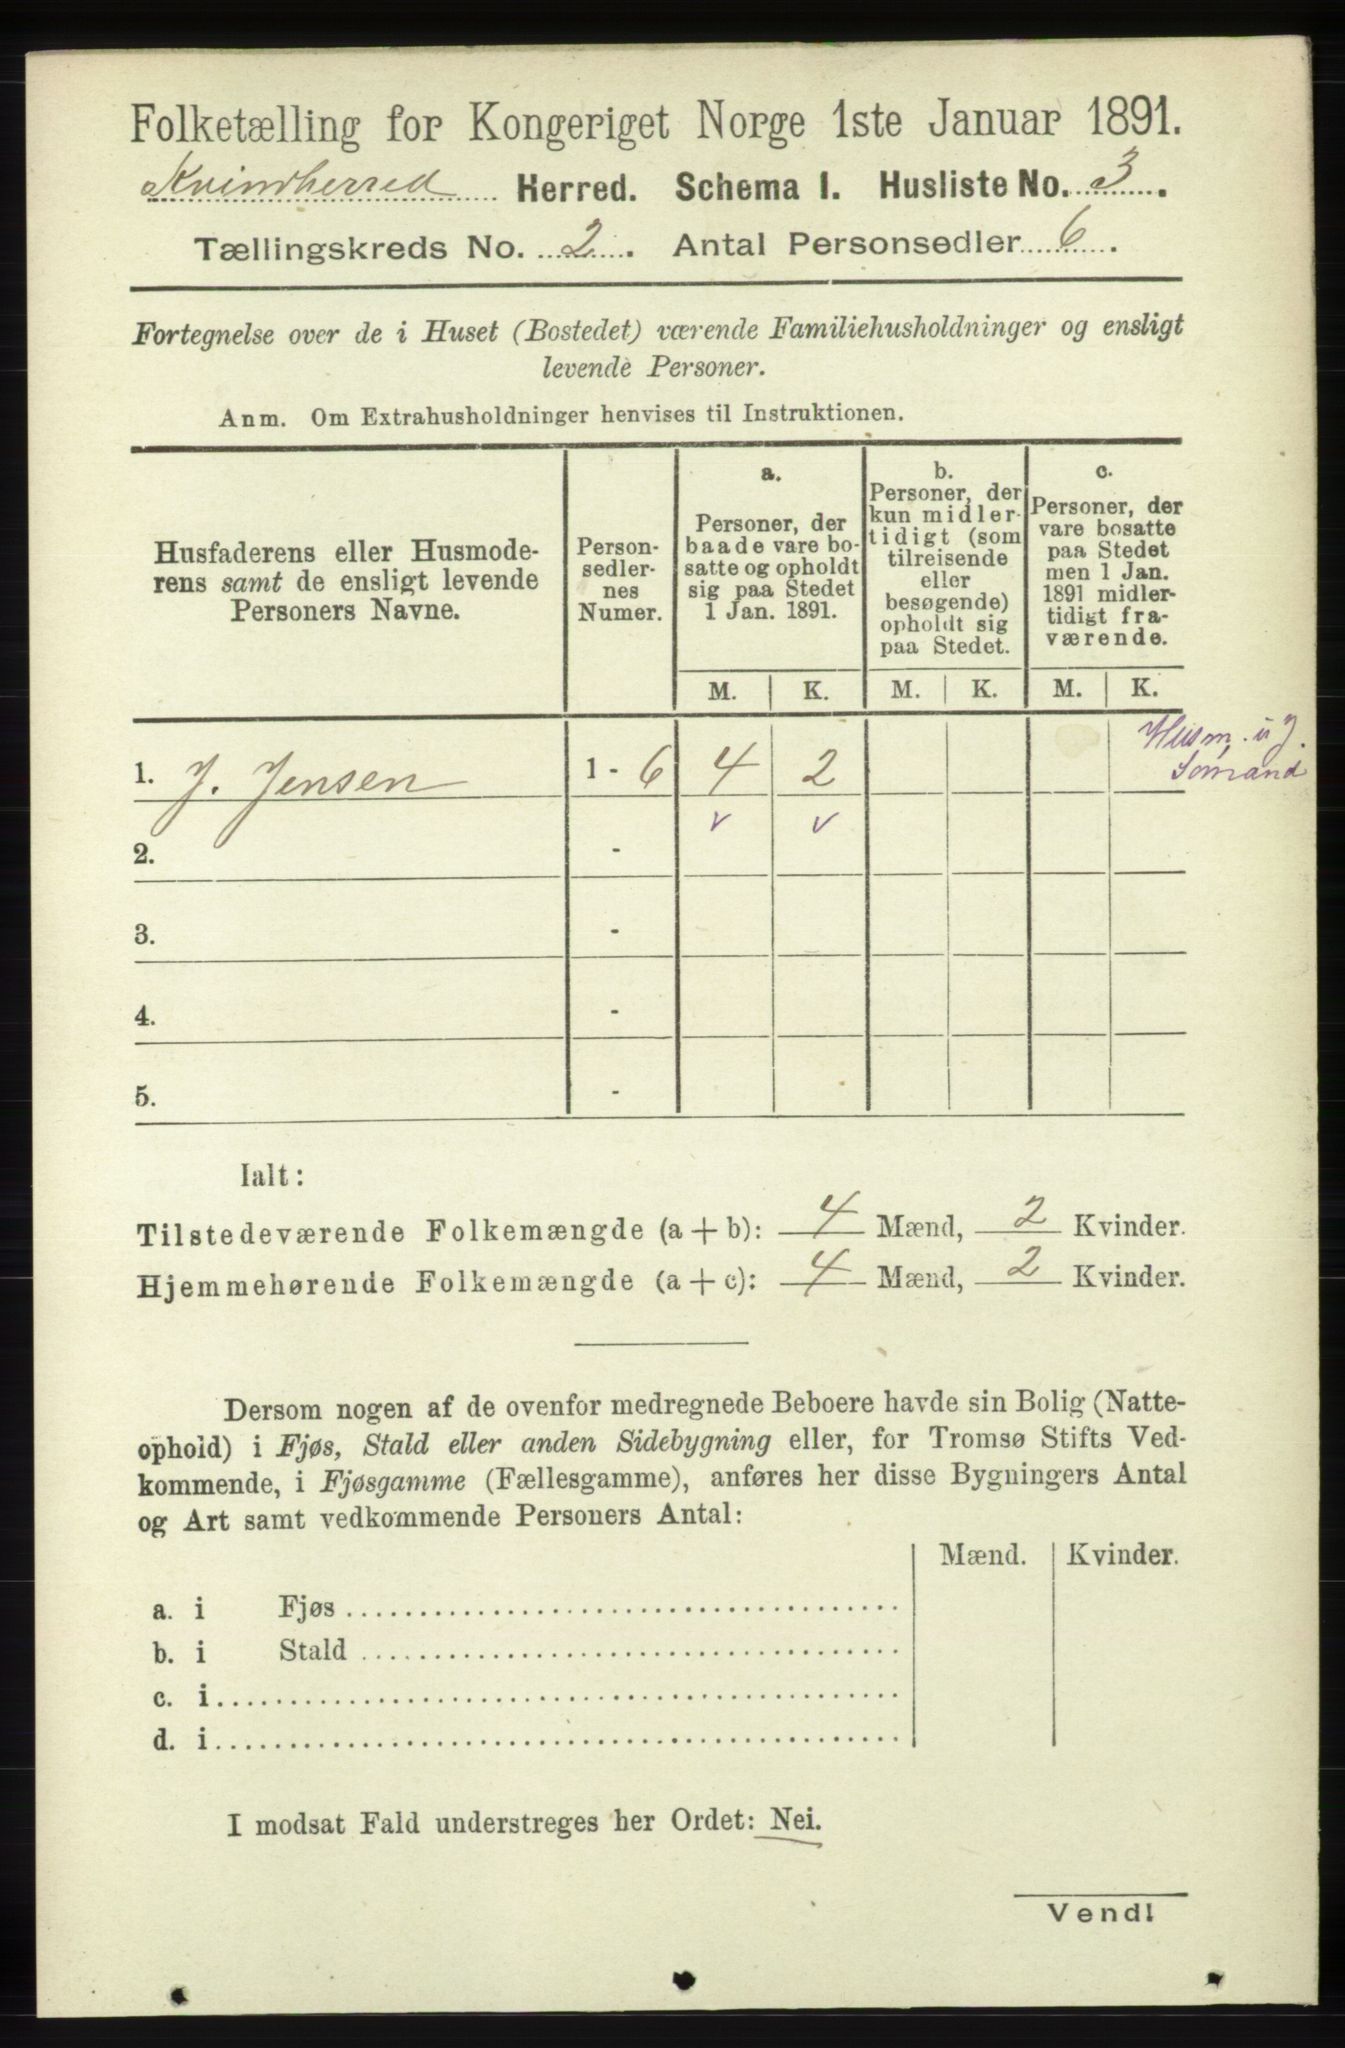 Folketælling for Kongeriget Norge 1ste Januar 1891.
Kvindherred Herred. Schema I. Husliste No. 3.
Tællingskreds No. 2. Antal Personsedler 6.
Fortegnelse over de i Huset (Bostedet) værende Familiehusholdninger og ensligt
levende Personer.
Anm. Om Extrahusholdninger henvises til Instruktionen.
Husfaderens eller Husmode-
rens samt de ensligt levende
Personers Navne.
Person-
sedler-
nes
Numer.
a.
Personer, der
baade vare bo-
satte og opholdt
sig paa Stedet
1 Jan. 1891.
b.
Personer, der
kun midler-
tidigt (som
tilreisende
eller
besøgende)
opholdt sig
paa Stedet.
c.
Personer, der
vare bosatte
paa Stedet
men 1 Jan.
1891 midler-
tidigt fra-
værende.
M. K. M. K. M. K.
1. J. Jensen 1 - 6 4 2 Husm. u J.
Sømand
v v
2. -
3. -
4. -
5. -
Ialt:
Tilstedeværende Folkemængde (a + b): 4 Mænd, 2 Kvinder.
Hjemmehørende Folkemængde (a + c): 4 Mænd, 2 Kvinder.
Dersom nogen af de ovenfor medregnede Beboere havde sin Bolig (Natte-
ophold) i Fjøs, Stald eller anden Sidebygning eller, for Tromsø Stifts Ved-
kommende, i Fjøsgamme (Fællesgamme), anføres her disse Bygningers Antal
og Art samt vedkommende Personers Antal:
Mænd. Kvinder.
a. i Fjøs
b. i Stald
c. i
d. i
I modsat Fald understreges her Ordet: Nei.
Vend!